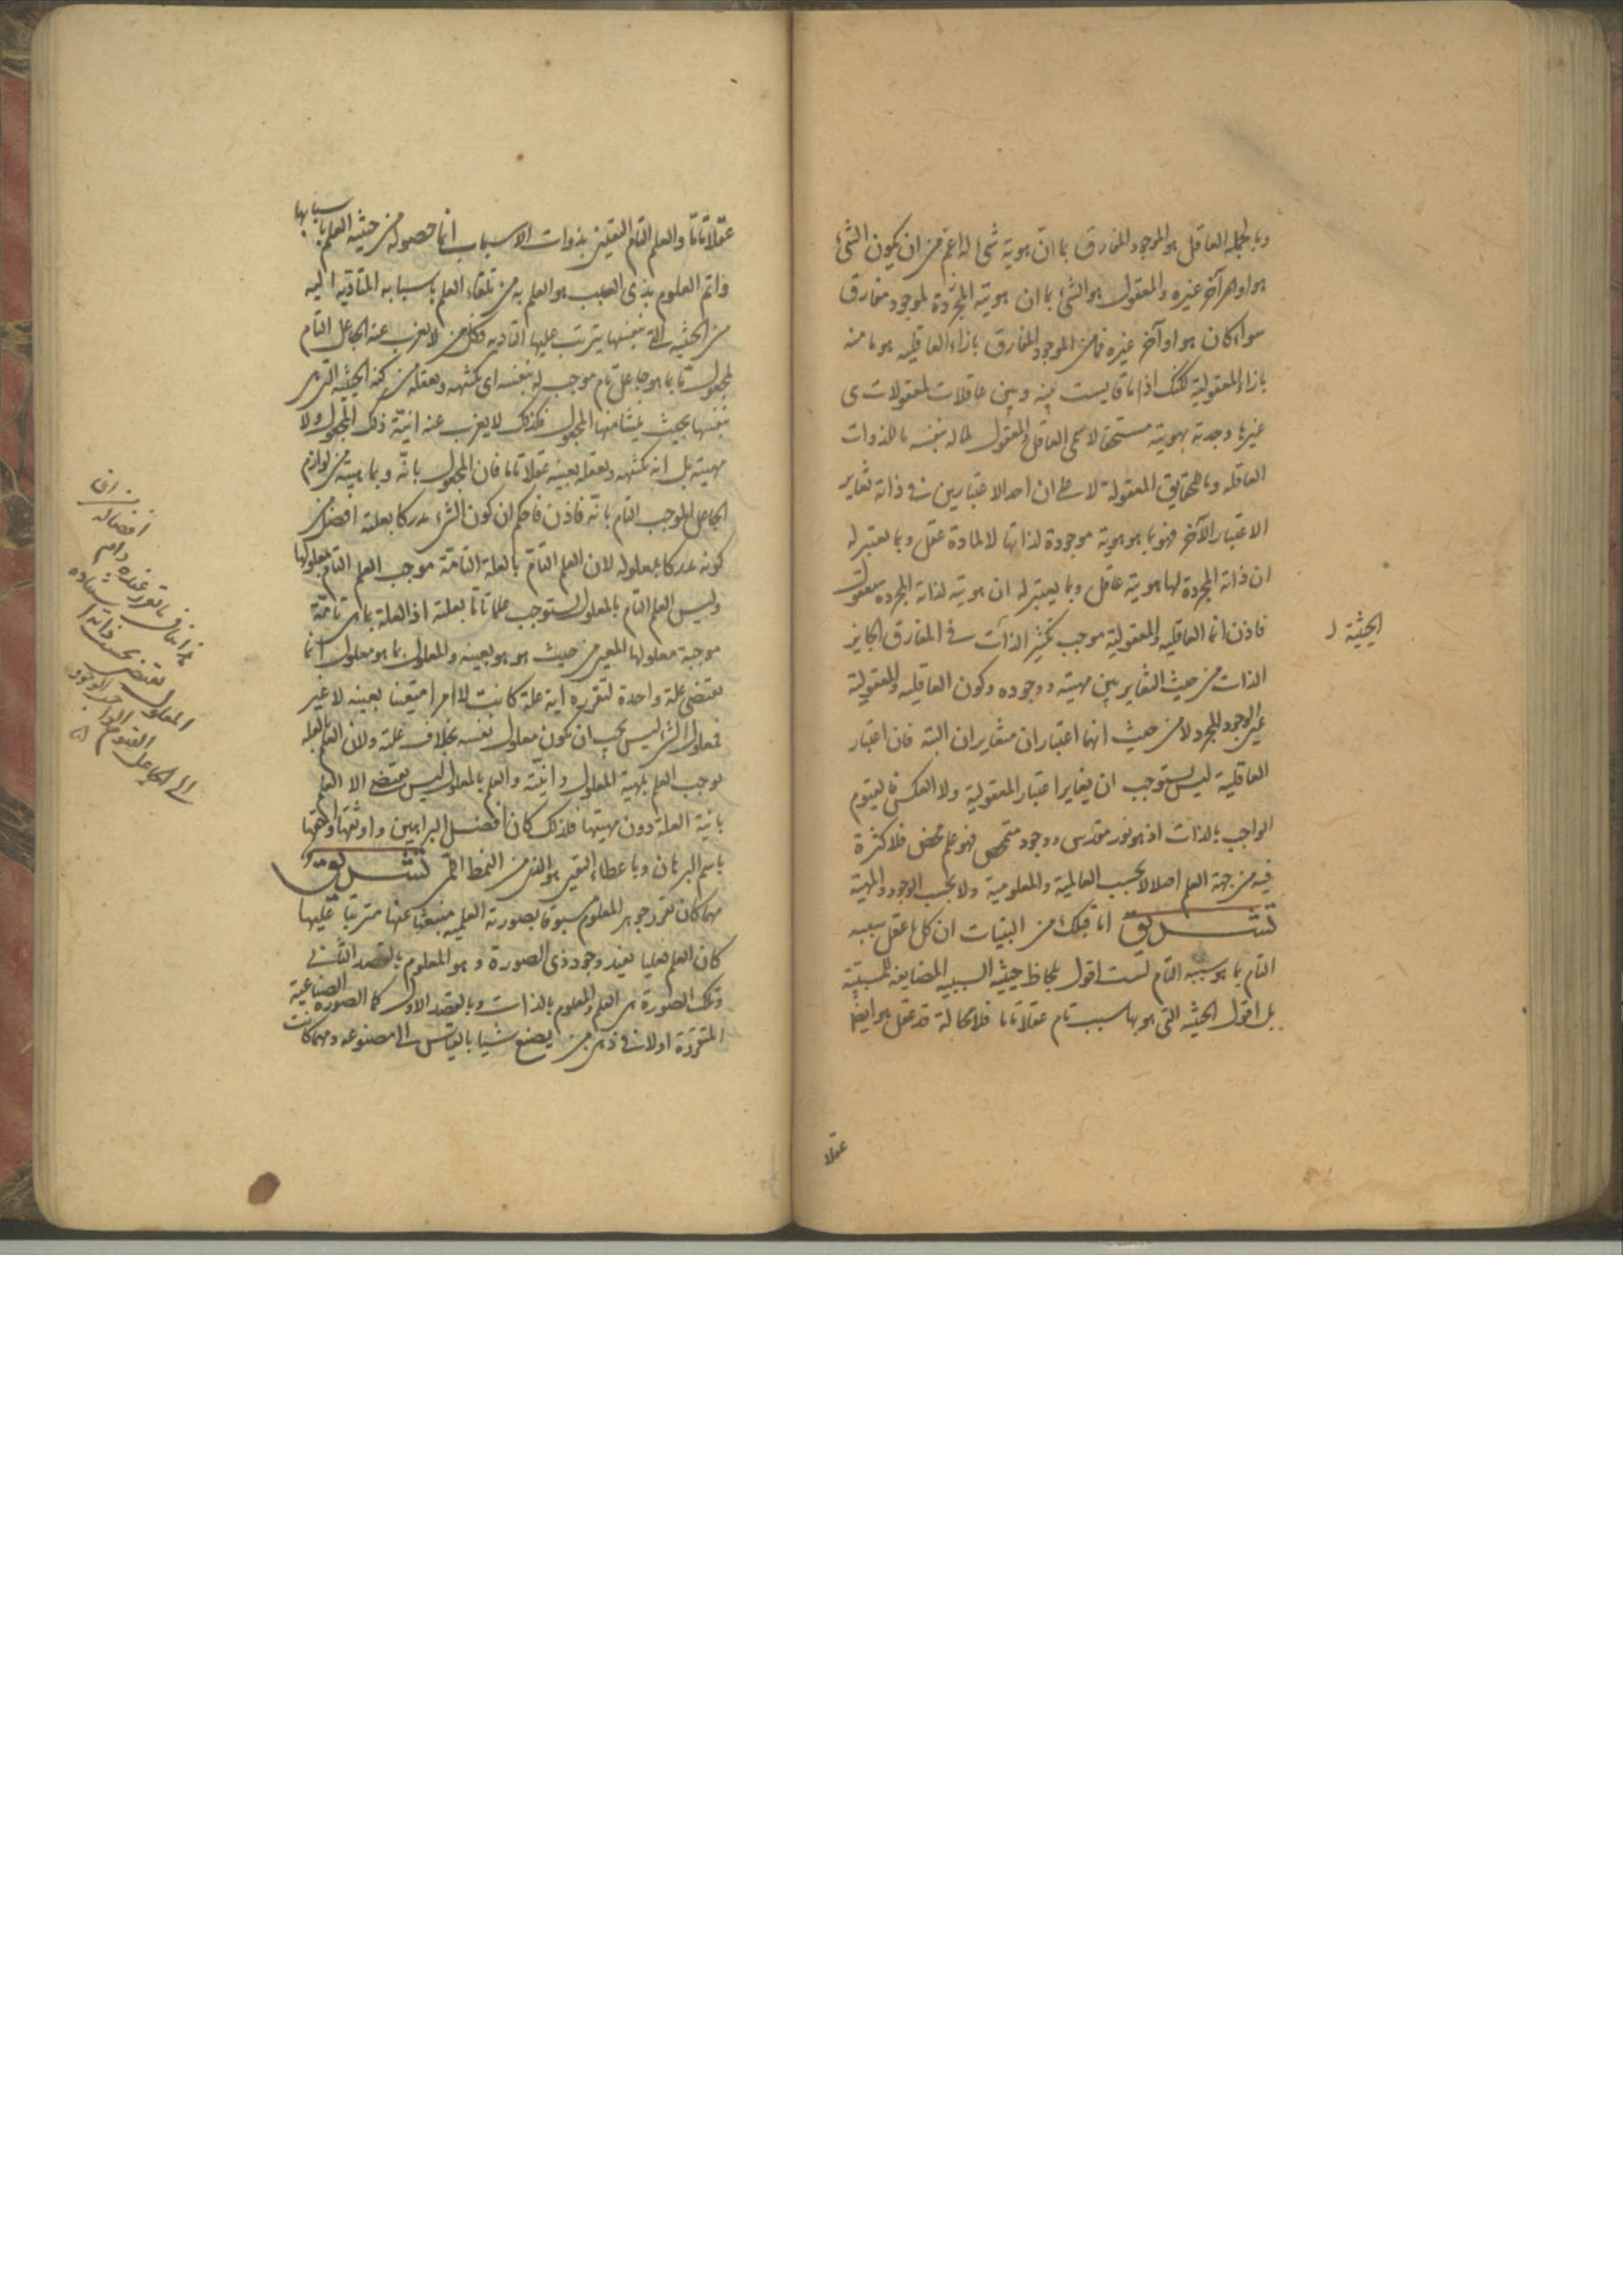 وبالجملة العاقل هو الموجود المفارق بما ان هوية شئ له اعم من ان يكون الشئ
هو او آخر غيره والمعقول هو الشئ بما ان هويته المجردة لموجود مفارق
سواء كان هو او آخر غيره فما من الموجود المفارق بازاء العاقلية هو ما منه
بازاء المعقولية لكنك اذا ما قايست بينه وبين عاقلات لمعقولات هى
غيرها وجدته بهويته مستحقا لاسمى العاقل والمعقول لما له بنفسه ما للذوات
العاقلة وما للحقايق المعقولة لا على ان احد الاعتبارين فى ذاته يغاير
الاعتبار الآخر فهو بما هو هوية موجودة لذاتها لا لمادة عقل وبما يعتبر له
ان ذاته المجردة لها هويته عاقل وبما يعتبر له ان هويته لذاته المجرده معقول
فاذن انما العاقلية والمعقولية موجب تكثير الذات فى المفارق الجايز
الحيثية
الذات من حيث التغاير بين مهيته ووجوده وكون العاقلية والمعقولية
عين الوجود المجرد لا من حيث انهما اعتباران متغايران البتة فان اعتبار
العاقلية ليس يستوجب ان يغاير اعتبار المعقولية ولا العكس فالقيوم
الواجب بالذات اذ هو نور مقدس ووجود متمحض فهو علم محض فلا كثرة
فيه من جهة العلم اصلا لا بحسب العالمية والمعلومية ولا بحسب الوجود والمهية
تشريق اما قبلك من البينات ان كل ما عقل سببه
التام بما هو سببه التام لست اقول بلحاظ حيثية السببية المضايفة للمسببية
بل اقول الحيثية التى هو بها سبب تام عقلا تاما فلا محالة قد عقل هو ايضا
عقلا
عقلا تاما والعلم التام اليقينى بذوات الاسباب انما حصوله من حيثية العلم باسبابها
واتم العلوم بذى السبب هو العلم به من تلقاء العلم باسبابه المتأدية اليه
من الحيثية التى بنفسها يترتب عليها التأدية فكل من لا يعزب عنه الجاعل التام
لمجعول ما بما هو جاعل تام موجب له بنفسه اى يكتنهه ويعقله من كنه الحيثية التى هى
بنفسها بحيث ينشأ منها المجعول فكذلك لا يعزب عنه انية ذلك المجعول ولا
مهيته بل انه يكتنهه ويعقله بعينه عقلا تاما فان المجعول بانيته وبمهيته من لوازم
الجاعل الموجب التام بانيته فاذن فاحكم ان كون الشئ مدركا بعلته افضل من
كونه مدركا بمعلوله لان العلم التام بالعلة التامة موجب العلم التام بمعلولها
وليس العلم التام بالمعلول يستوجب علما تاما بعلته اذ العلة بما هى تامة
موجبة معلولها المعين من حيث هو هو بعينه والمعلول بما هو معلول انما
يقتضى علة واحدة لتقرره اية علة كانت لا امرا متعينا بعينه لا غير
فمعلول الشئ ليس يجب ان يكون معلول نفسه بخلاف علته ولان العلم بالعلة
يوجب العلم بمهية المعلول وانيته والعلم بالمعلول ليس يقتضى الا العلم
بانية العلة دون مهيتها فلذلك كان افضل البراهين واوثقها واحقها
باسم البرهان وباعطاء اليقين هو الذى من النمط اللمى تشريق
مهما كان تقرر جوهر المعلوم مسبوقا بصورته العلمية منبعثا عنها مترتبا عليها
كان العلم فعليا يفيد وجود ذى الصورة وهو المعلوم بالقصد الثانى
وتلك الصورة هى العلم والمعلوم بالذات وبالقصد الاول كما الصورة الصناعية
المتقررة اولا فى ذهن من يصنع شيئا بالقياس الى مصنوعه ومهما كانت
المعلول يقتضى بحسب ذاته
الى الجاعل القيوم الواجب الوجود